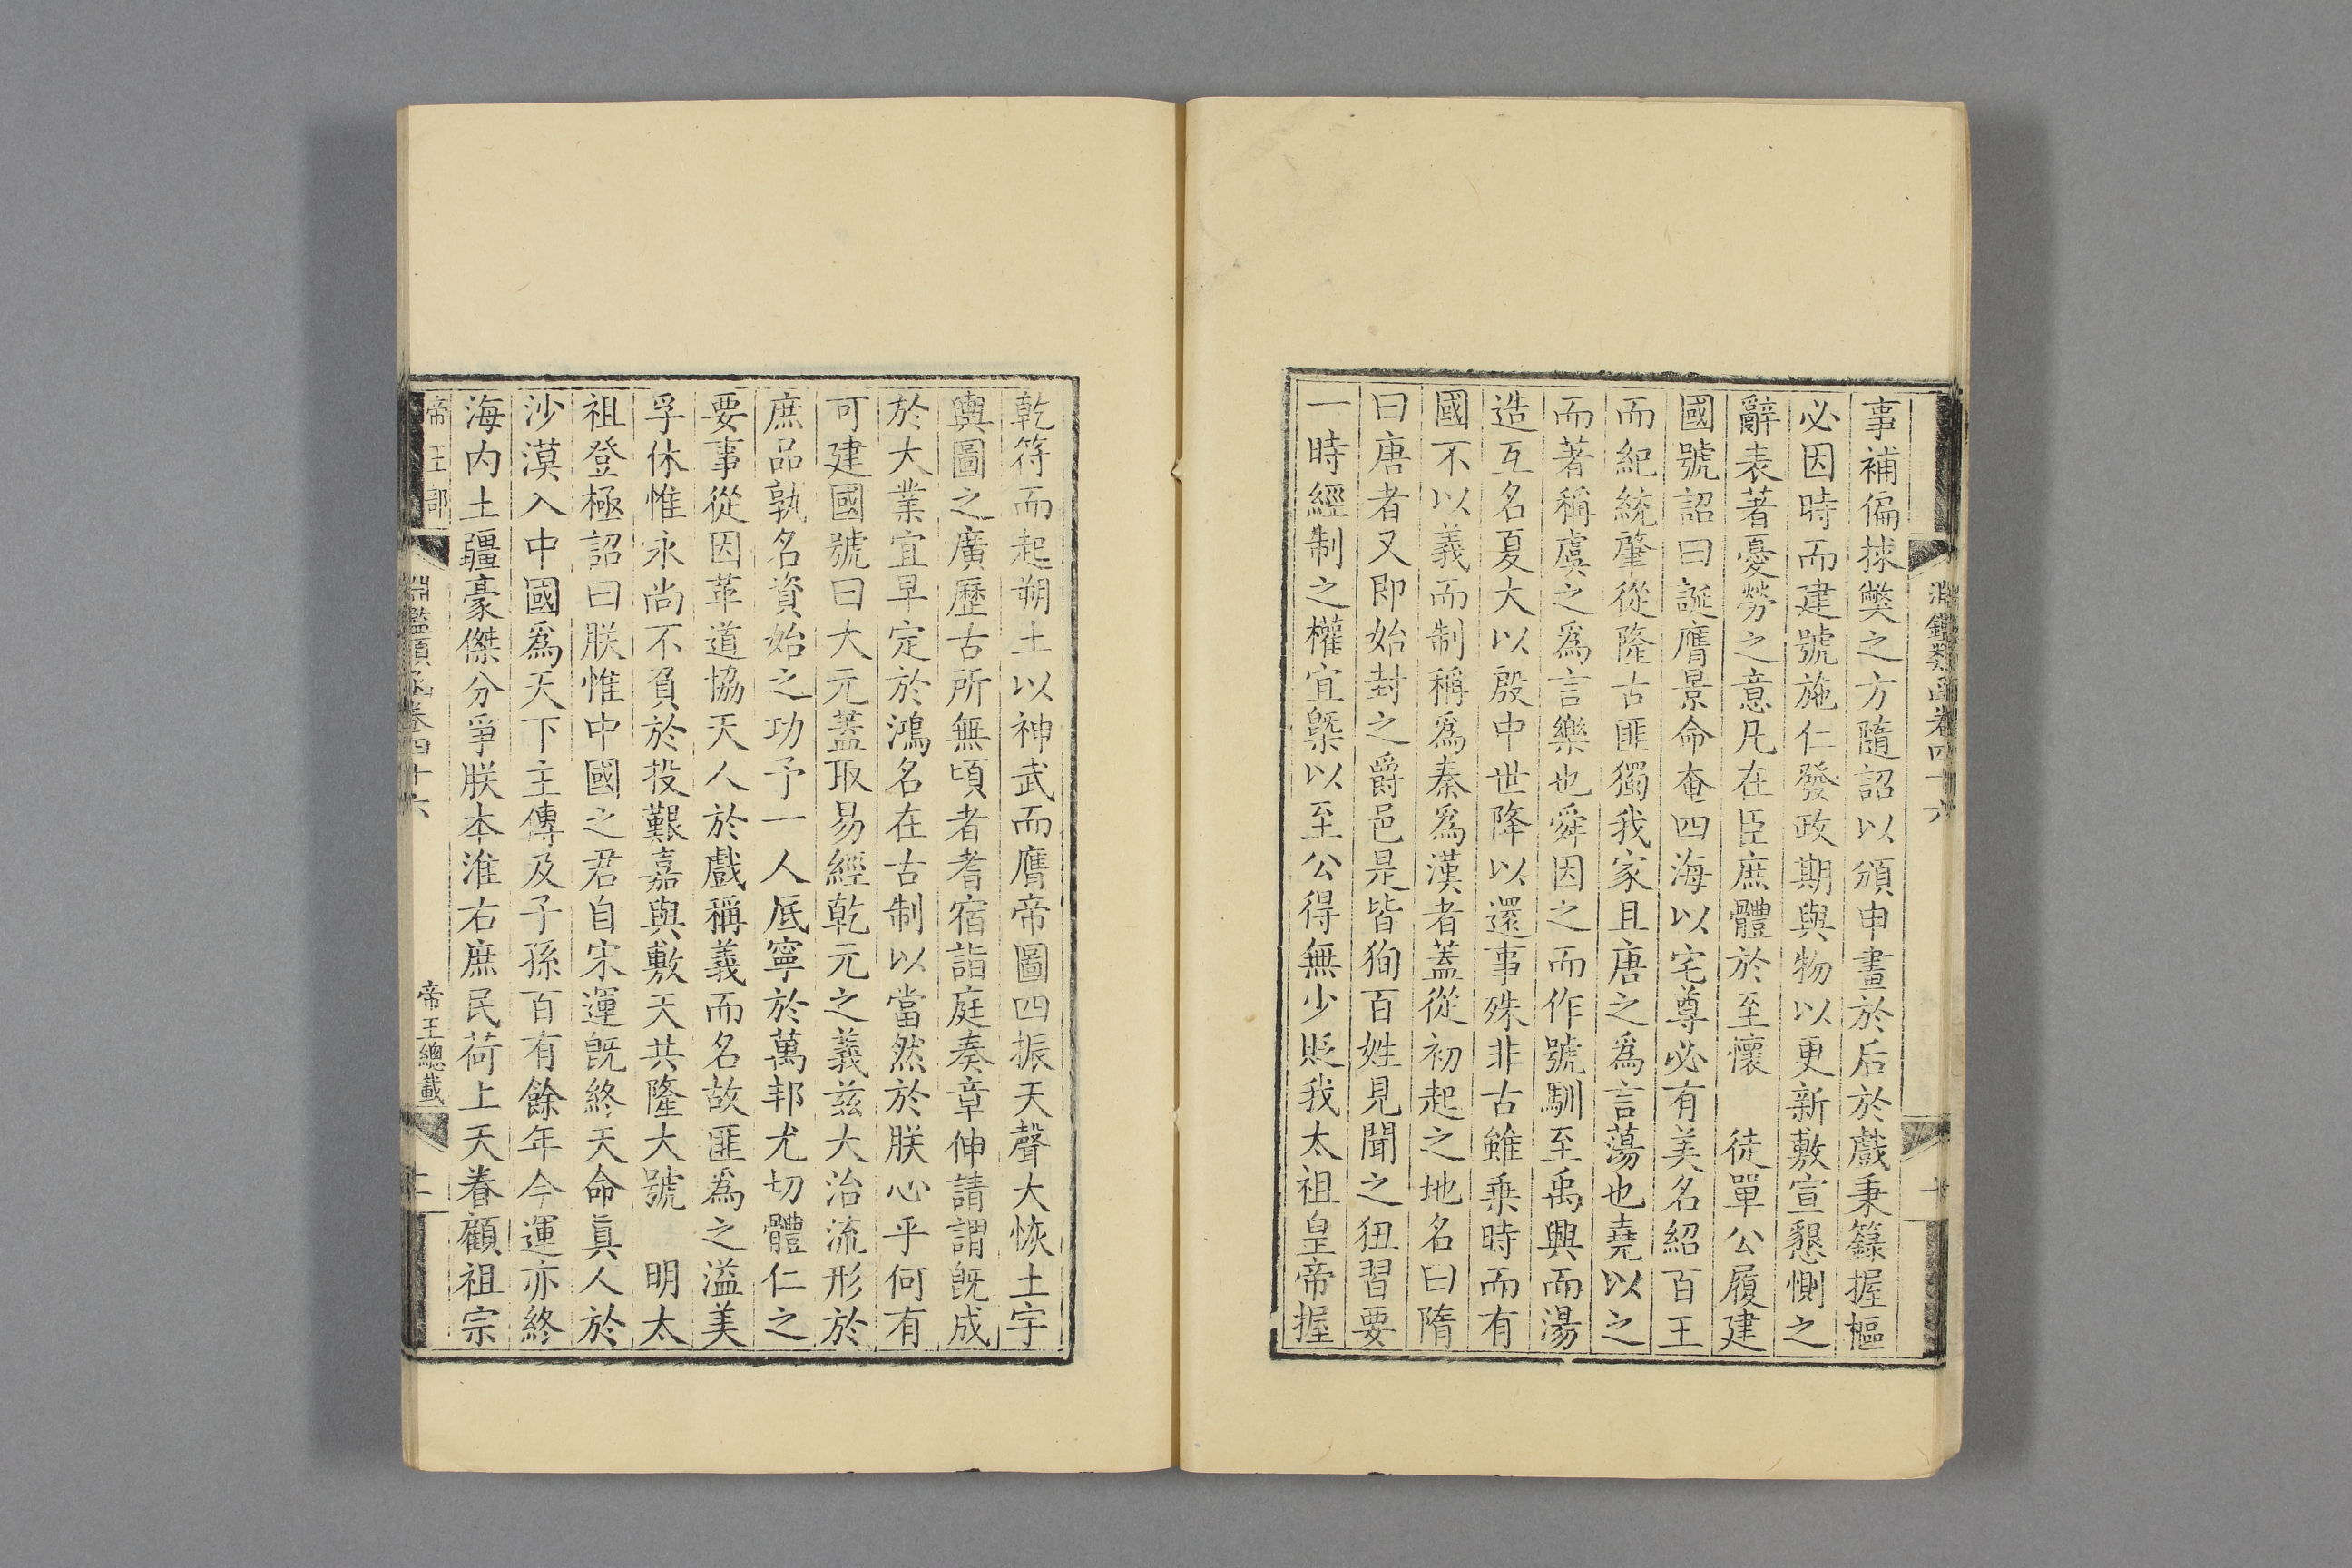 淵鑑類函卷四十六
十
事補偏捄獘之方隨詔以頒申畫於后於戲秉籙握樞
必因時而建號施仁發政期與物以更新敷宣懇惻之
辭表著憂勞之意凡在臣庶體於至懷　徒單公履建
國號詔曰誕膺景命奄四海以宅尊必有美名紹百王
而紀統肇從隆古匪獨我家且唐之爲言蕩也堯以之
而著稱虞之爲言樂也舜因之而作號馴至禹興而湯
造互名夏大以殷中世降以還事殊非古雖乗時而有
國不以義而制稱爲秦爲漢者蓋從初起之地名曰隋
曰唐者又即始封之爵邑是皆狥百姓見聞之狃習要
一時經制之權宜槩以至公得無少貶我太祖皇帝握
乾符而起朔土以神武而膺帝圖四振天聲大恢土宇
輿圖之廣歷古所無頃者耆宿詣庭奏章伸請謂旣成
於大業宜早定於鴻名在古制以當然於朕心乎何有
可建國號曰大元蓋取易經乾元之義兹大治流形於
庶品孰名資始之功予一人底寧於萬邦尤切體仁之
要事從因革道協天人於戲稱義而名故匪爲之溢美
孚休惟永尚不負於投艱嘉與敷天共隆大號　明太
祖登極詔曰朕惟中國之君自宋運旣終天命眞人於
沙漠入中國爲天下主傳及子孫百有餘年今運亦終
海内土疆豪傑分爭朕本淮右庶民荷上天眷顧祖宗
帝王部
淵鑑類函卷四十六
帝王總載